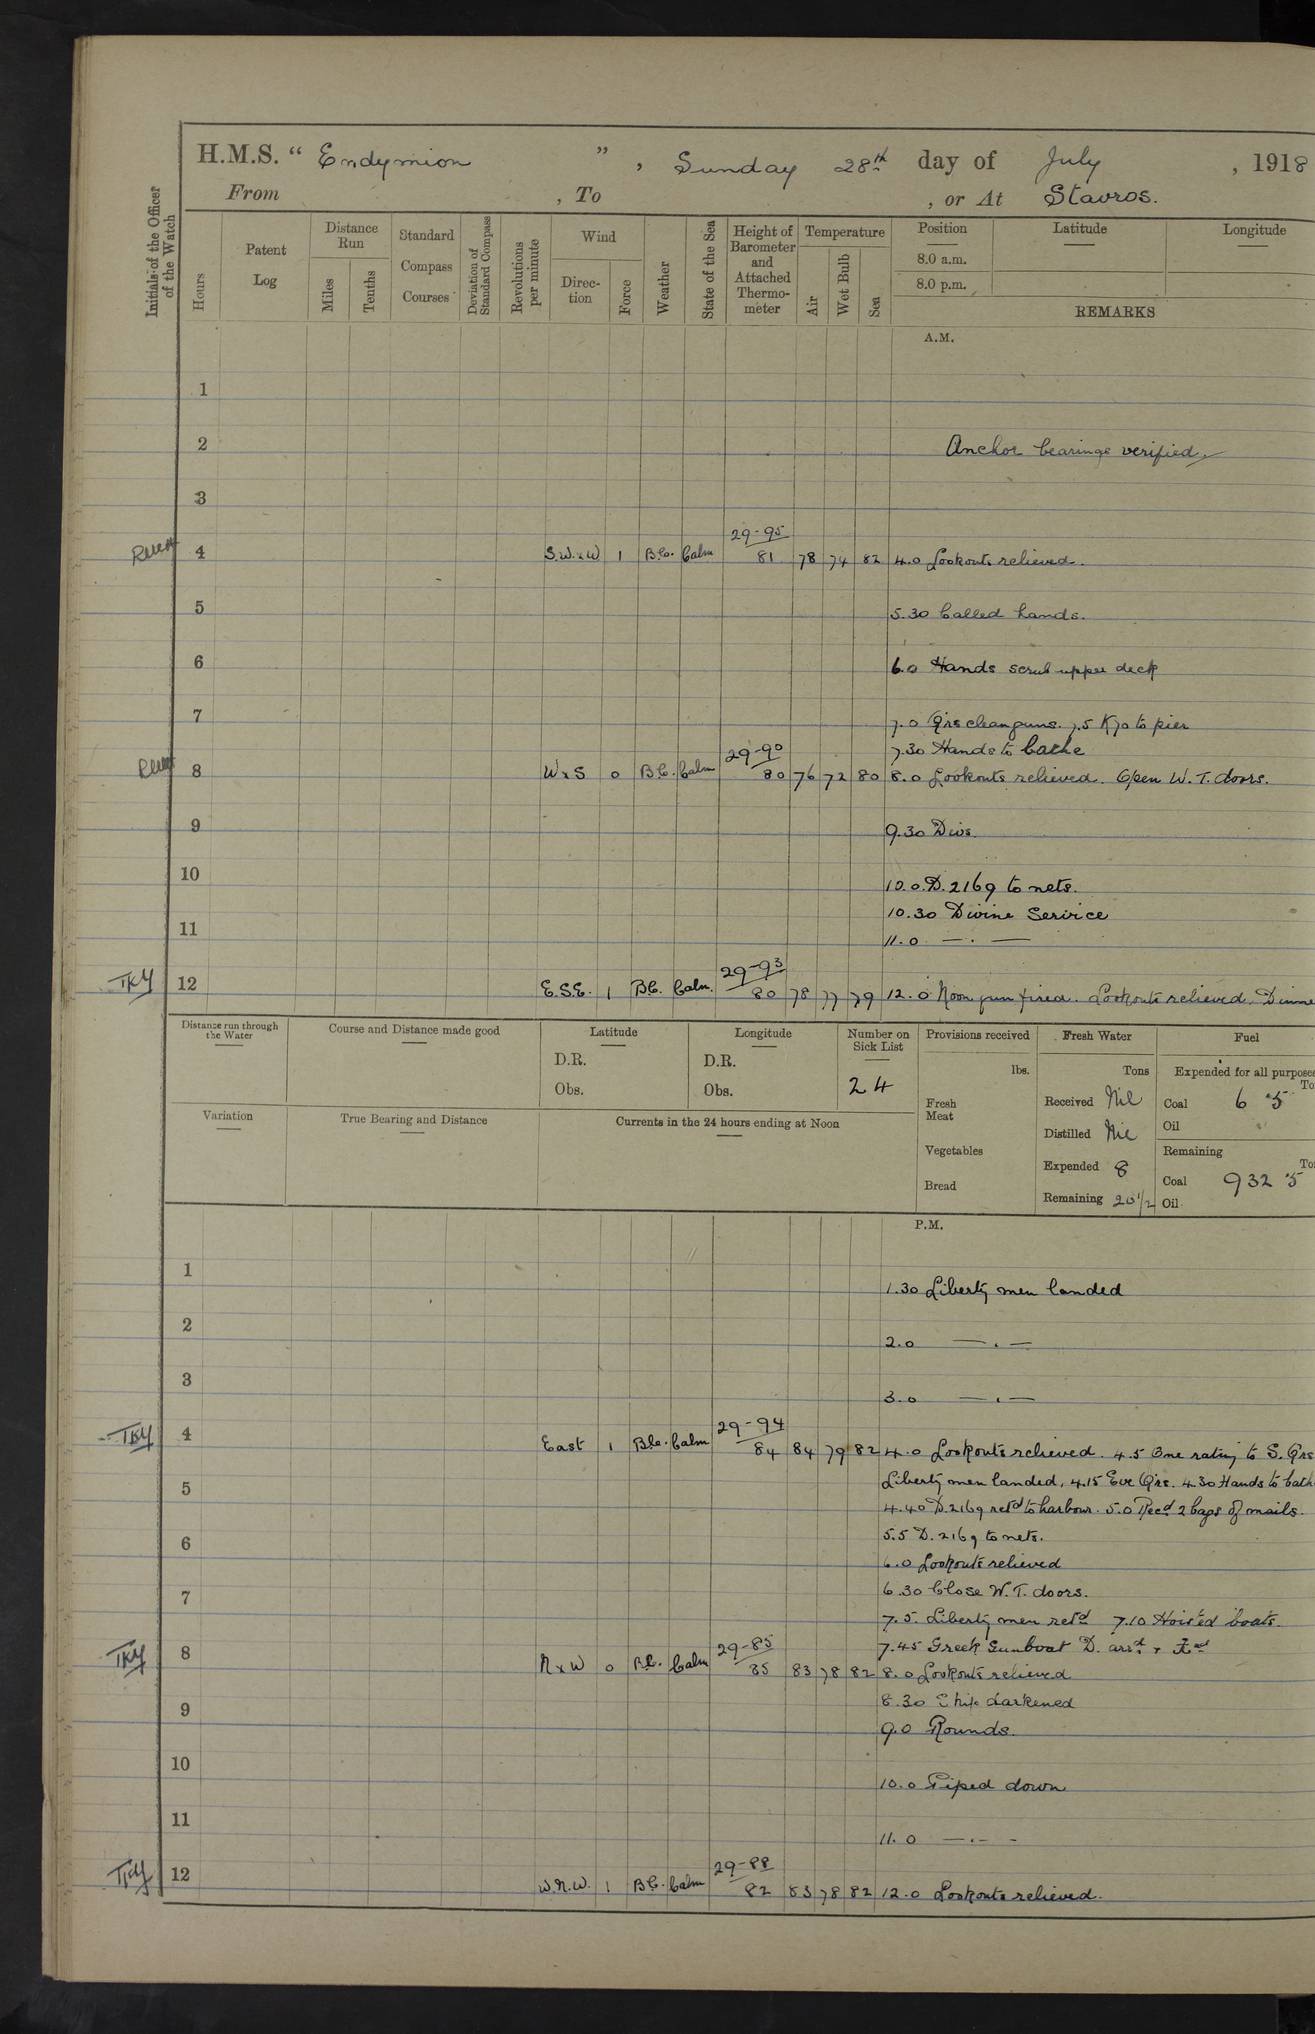 H.M.S. “ Endymion ” , Sunday 28th day of July , 1918
From , To , or At Stavros.
Initials of the Officer of the Watch
Hours
Patent Log
Distance Run
Miles
Tenths
Standard Compass Courses
Deviation of Standard Compass
Revolutions per minute
Wind
Direction
Force
Weather
State of the Sea
Height of Barometer and Attached Thermometer
Temperature
Air
Wet Bulb
Sea
Position
8.0 a.m.
8.0 p.m.
Latitude
Longitude
REMARKS
A.M.
1
2 Anchor bearings verified.
3
29-95
4 S.W.xW 1 B.C. Calm 81 78 74 82 4.0 Lookouts relieved.
5 5.30 Called hands.
6 6.0 Hands scrub upper deck
7 7.0 Qrs clean guns. 7.5 K70 to pier
29-90 7.30 Hands to bathe
8 WxS 0 B.C. Calm 80 76 72 80 8.0 Lookouts relieved. Open W.T. doors.
9 9.30 Divs.
10 10.0 D.2169 to nets.
10.30 Divine Service
11 11.0 — . —
29-93
TKY 12 E.S.E. 1 B.C. Calm. 80 78 77 79 12.0 Noon gun fired. Lookouts relieved. Dinne
Distance run through the Water
Course and Distance made good
Latitude
D.R.
Obs.
Longitude
D.R.
Obs.
Number on Sick List
24
Provisions received
lbs.
Fresh Meat
Vegetables
Bread
Fresh Water
Tons
Received Nil
Distilled Nil
Expended 8
Remaining 201/2
Fuel
Expended for all purposes
To
Coal 6 .5
Oil
Remaining
To
Coal 932 .5
Oil
Variation
True Bearing and Distance
Currents in the 24 hours ending at Noon
P.M.
1 1.30 Liberty men landed
2 2.0 — . —
3 3.0 — . —
29-94
TKY 4 East 1 B.C. Calm 84 84 79 82 4.0 Lookouts relieved. 4.5 One rating to S. Qrs
5 Liberty men landed, 4.15 Eve Qrs. 4.30 Hands to bath
4.40 D.2169 retd to harbour. 5.0 Recd 2 bags of mails.
6 5.5 D.2169 to nets.
6.0 Lookouts relieved
7 6.30 Close W.T. doors.
7.5. Liberty men retd 7.10 Hoisted boats.
29-85 7.45 Greek Gunboat D. arrd &
TKY 8 NxW 0 B.C. Calm 85 83 78 82 8.0 Lookouts relieved
8.30 Ship darkened
9 9.0 Rounds.
10 10.0 Piped down
11 11.0 — . — -
29-88
TKY 12 W.N.W. 1 B.C. Calm 82 83 78 82 12.0 Lookouts relieved.